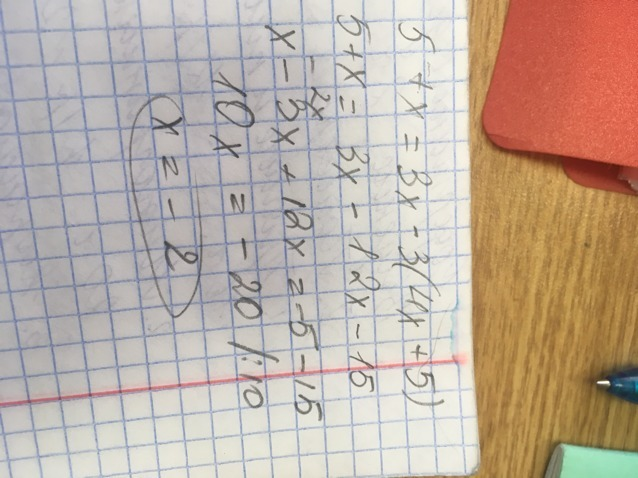 5+x = 3x-3(4x+5)
5+x = 3x - 12x - 15
-2x
x - 3x + 12x = -5 - 15
10x = -20 /:10
x = -2